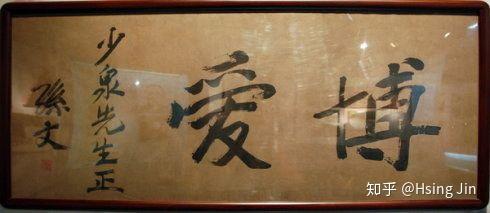 博愛
少泉先生正
孫文
知乎 @Hsing Jin